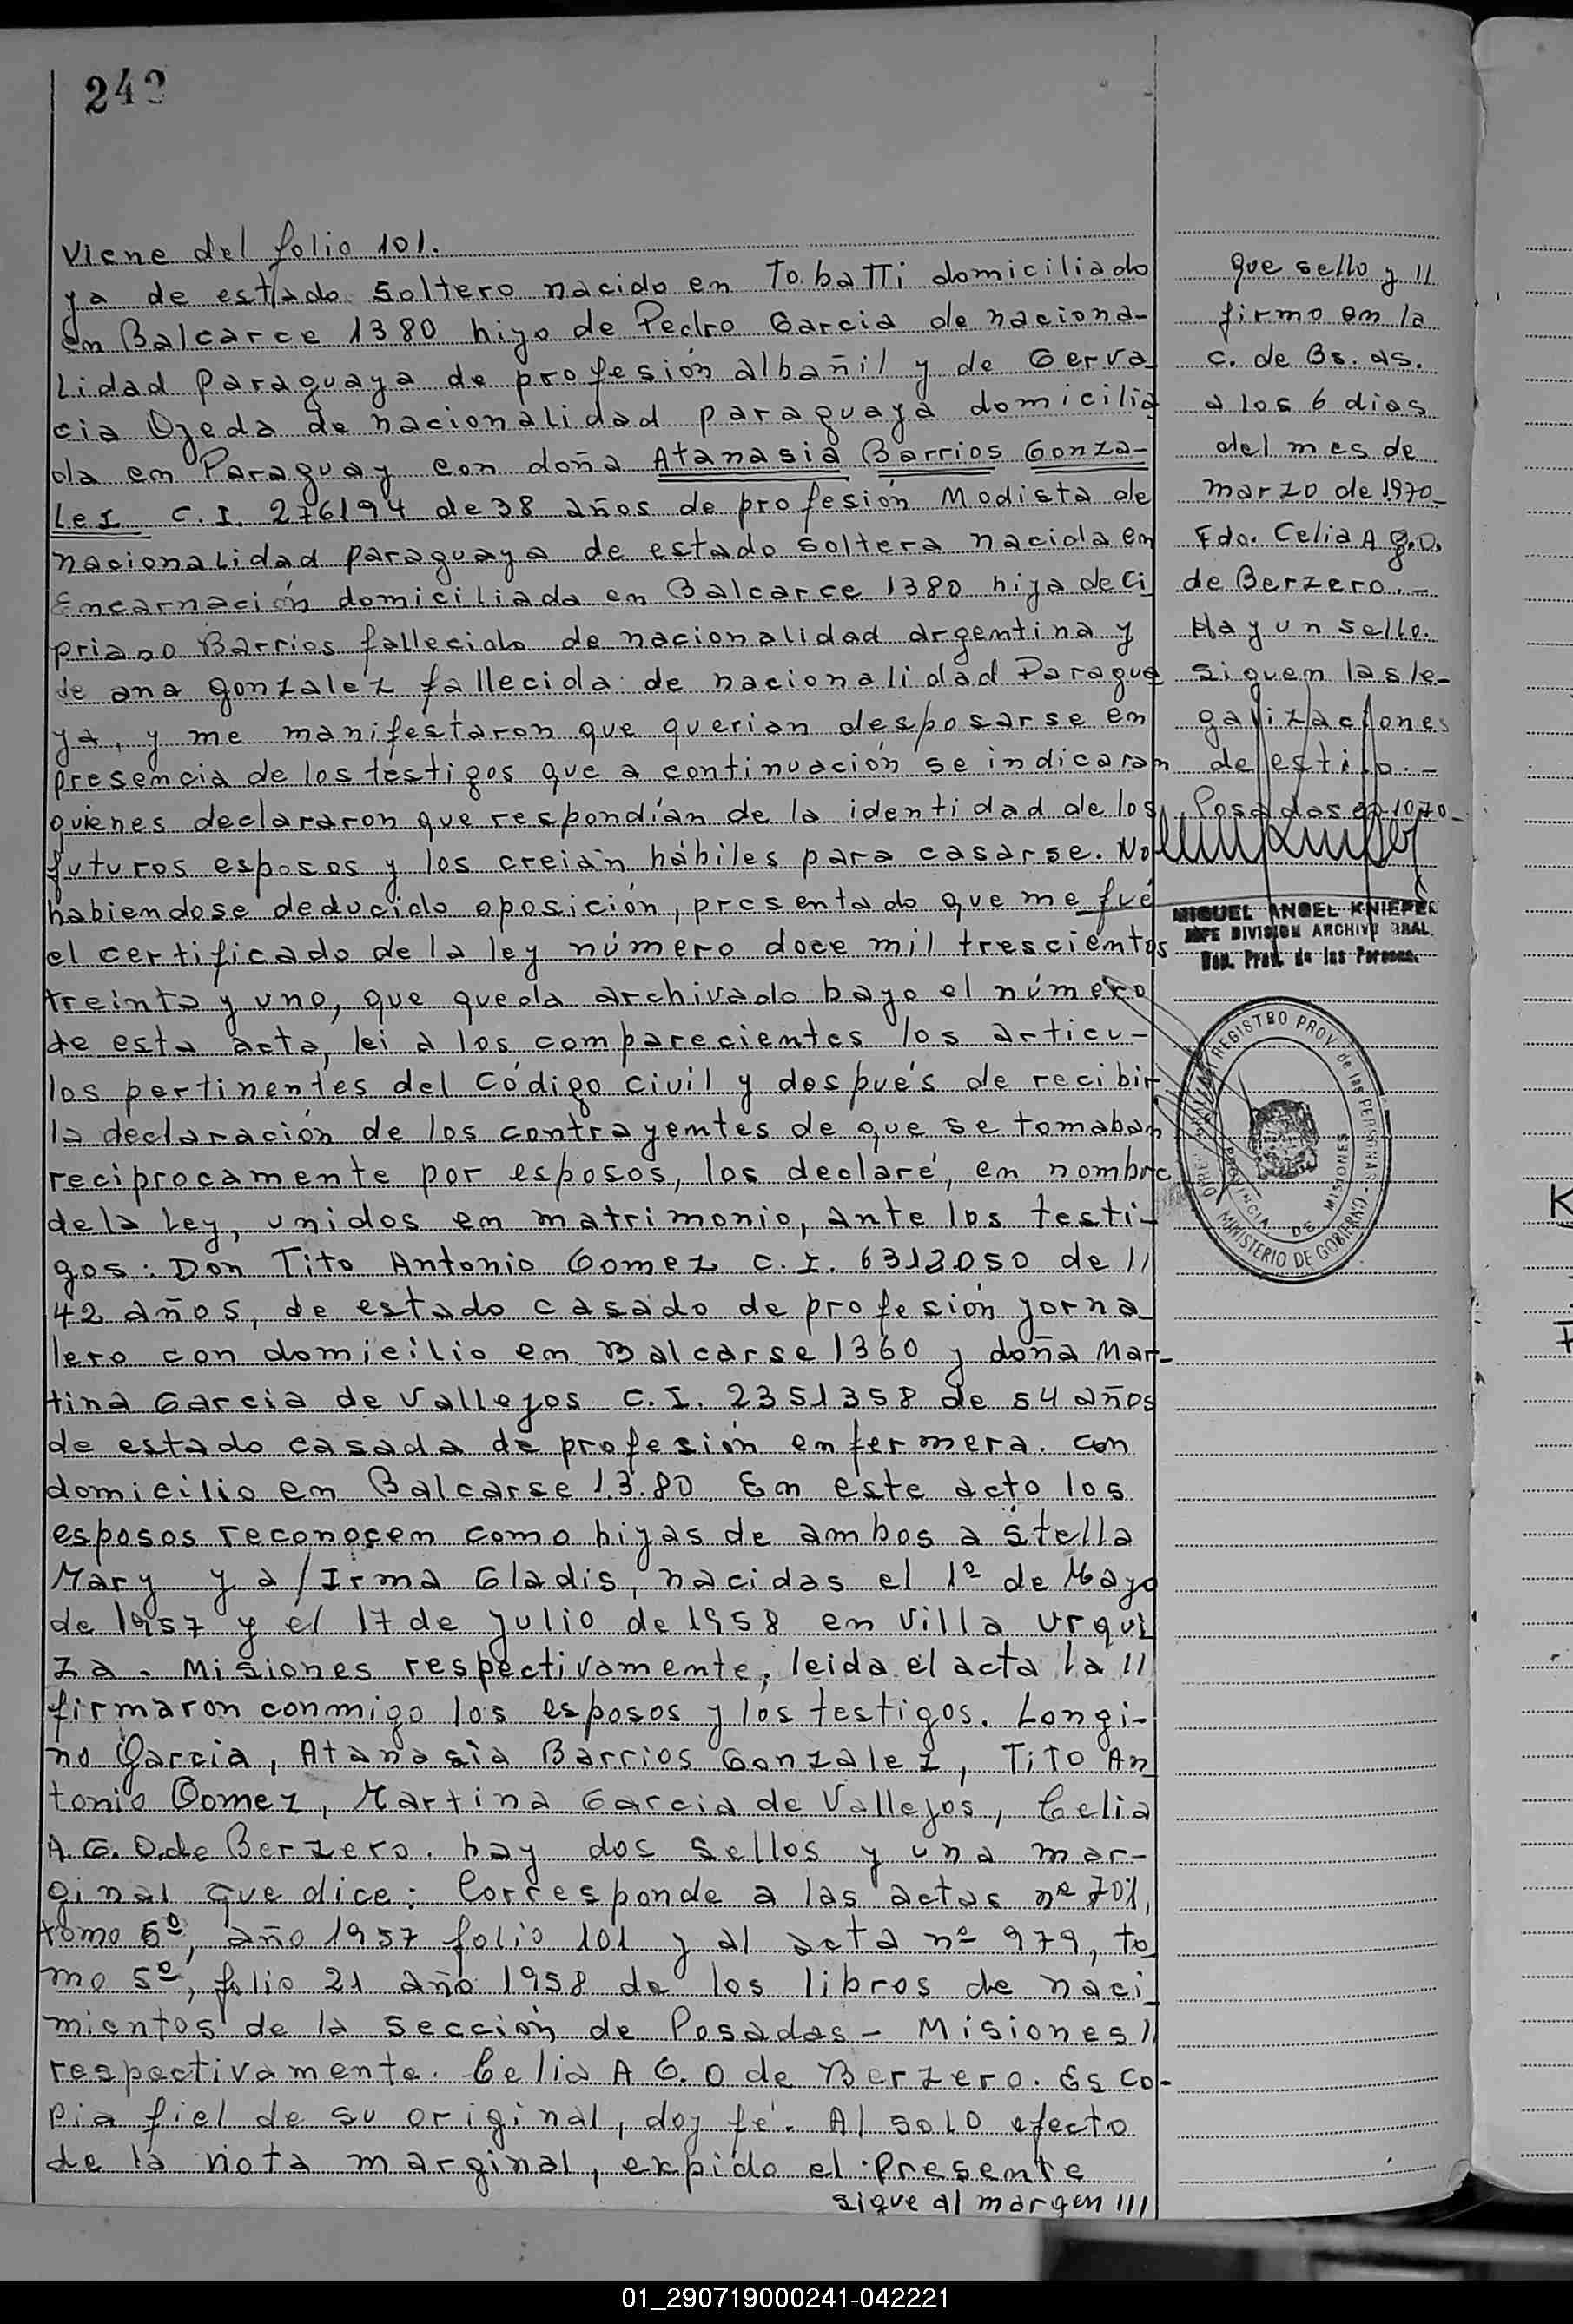 242
Viene del folio 101.
ya de estado soltero nacido en Tobatti domiciliado
en Balcarce 1380 hijo de Pedro Garcia de naciona-
lidad paraguaya de profesión albañil y de Gerva
cia Ojeda de nacionalidad paraguaya domicilia
da en Paraguay con doña Atanasia Barrios Gonza-
lez C.I. 276194 de 38 años de profesión Modista de
nacionalidad paraguaya de estado soltera nacida en
Encarnación domiciliada en Balcarce 1380 hija de Ci
priano Barrios fallecido de nacionalidad argentina y
de ana gonzalez fallecida de nacionalidad Paragua
ya, y me manifestaron que querian desposarse en
presencia de los testigos que a continuación se indicaran
quienes declararon que respondían de la identidad de los
futuros esposos y los creian hábiles para casarse. No
habiendose deducido oposición, presentado que me fué
el certificado de la ley número doce mil trescientos
treinta y uno, que queda archivado bajo el número
de esta acta, lei a los comparecientes los articu-
los pertinentes del Código civil y después de recibir
la declaración de los contrayentes de que se tomaban
reciprocamente por esposos, los declaré, en nombre
de la Ley, unidos en matrimonio, ante los testi-
gos: Don Tito Antonio Gomez C.I. 6312050 de //
42 años, de estado casado de profesión jorna
lero con domicilio en Balcarse 1360 y doña Mar-
tina Garcia de Vallejos C.I. 2351358 de 54 años
de estado casada de profesión enfermera. con
domicilio en Balcarse 1380. En este acto los
esposos reconocen como hijas de ambos a Stella
Mary y a / Irma Gladis, nacidas el 1º de Mayo
de 1957 y el 17 de julio de 1958 en Villa Urqui
za. Misiones respectivamente, leida el acta la //
firmaron conmigo los esposos y los testigos. Longi-
no Garcia, Atanasia Barrios Gonzalez, Tito An
tonio Gomez, Martina Garcia de Vallejos, Celia
A. G. O. de Berzero. hay dos sellos y una mar-
ginal que dice: Corresponde a las actas nº 701,
tomo 5º, año 1957 folio 101 y al acta nº 979, to
mo 5º, folio 21 año 1958 de los libros de naci
mientos de la sección de Posadas - Misiones //
respectivamente. Celia A G. O de Berzero. Es co-
pia fiel de su original, doy fé. Al solo efecto
de la nota marginal, expido el presente
sigue al margen ///
que sello y //
firmo en la
c. de Bs. as.
a los 6 dias
del mes de
marzo de 1970-
Fdo. Celia A G.O.
de Berzero.-
Hay un sello.
Siguen las le-
galizaciones
de estilo.-
Posadas 1970-
MIGUEL ANGEL KNIEPER
JEFE DIVISION ARCHIVO GRAL.
Reg. Prov. de las Personas
REGISTRO PROV. de las PERSONAS
MINISTERIO DE GOBIERNO
PROVINCIA DE MISIONES
01_290719000241-042221